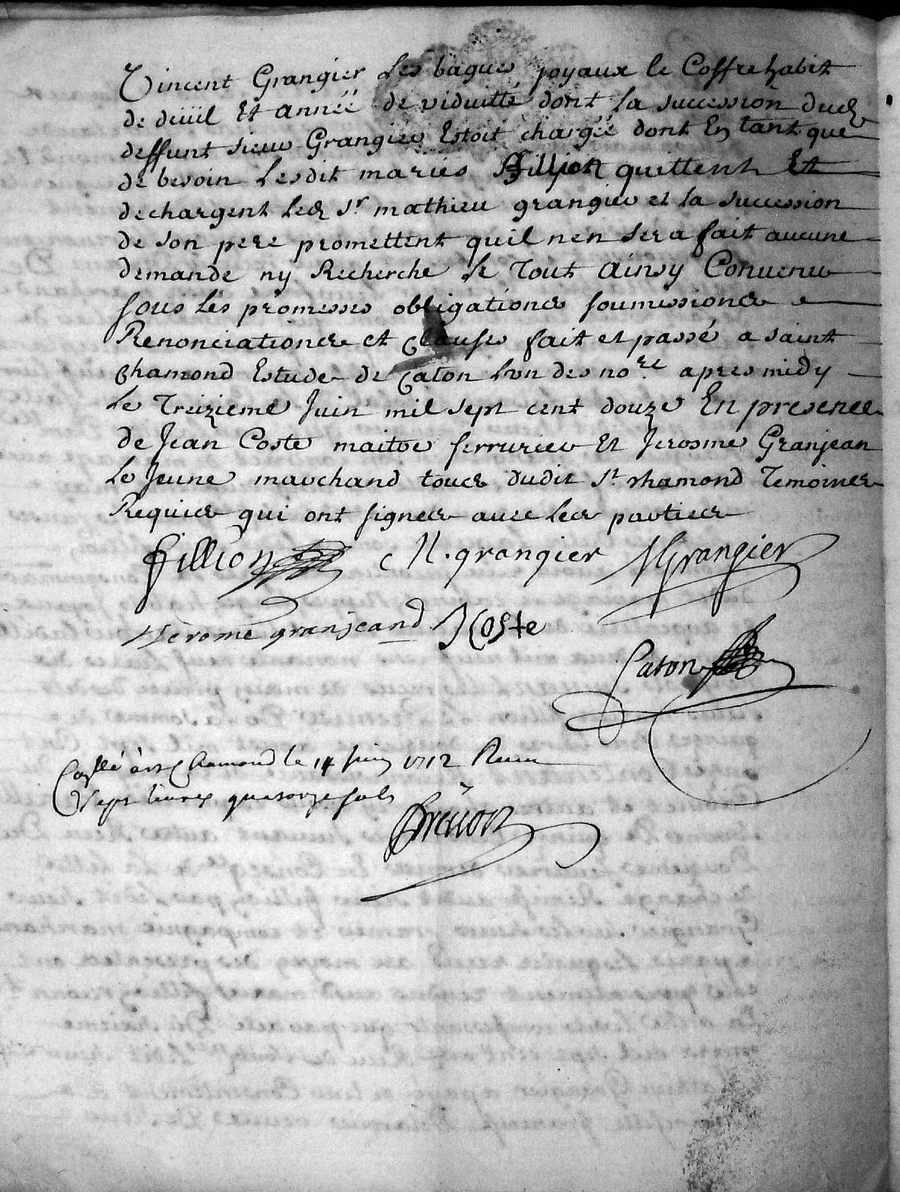 Vincent Grangier Les bagues joyaux le Coffre habit
de deüil Et année de viduitté dont la succession dud
deffunt sieur Grangier Estoit chargée dont En tant que
de besoin Lesdit mariés fillion quittent Et
dechargent led sr mathieu grangier et la succession
de son pere promettent quil nen sera fait aucune
demande ny Recherche Le Tout ainsy Convenu
sous Les promesses obligations soumissions
Renonciations et clauses fait et passé a saint
Chamond Estude de Caton L'un des nores apres midy
Le Treizieme Juin mil sept cent douze En presence
de Jean Coste maitre serrurier Et Jerosme Granjean
Le Jeune marchand tous dudit St chamond Temoins
Requis qui ont signes avec les parties
fillion M. grangier Grangier
Jerome granjeand J Coste
Caton
Con̄llé à St Chamond le 14 Juin 1712 Receu
Sept livres quatorze sols